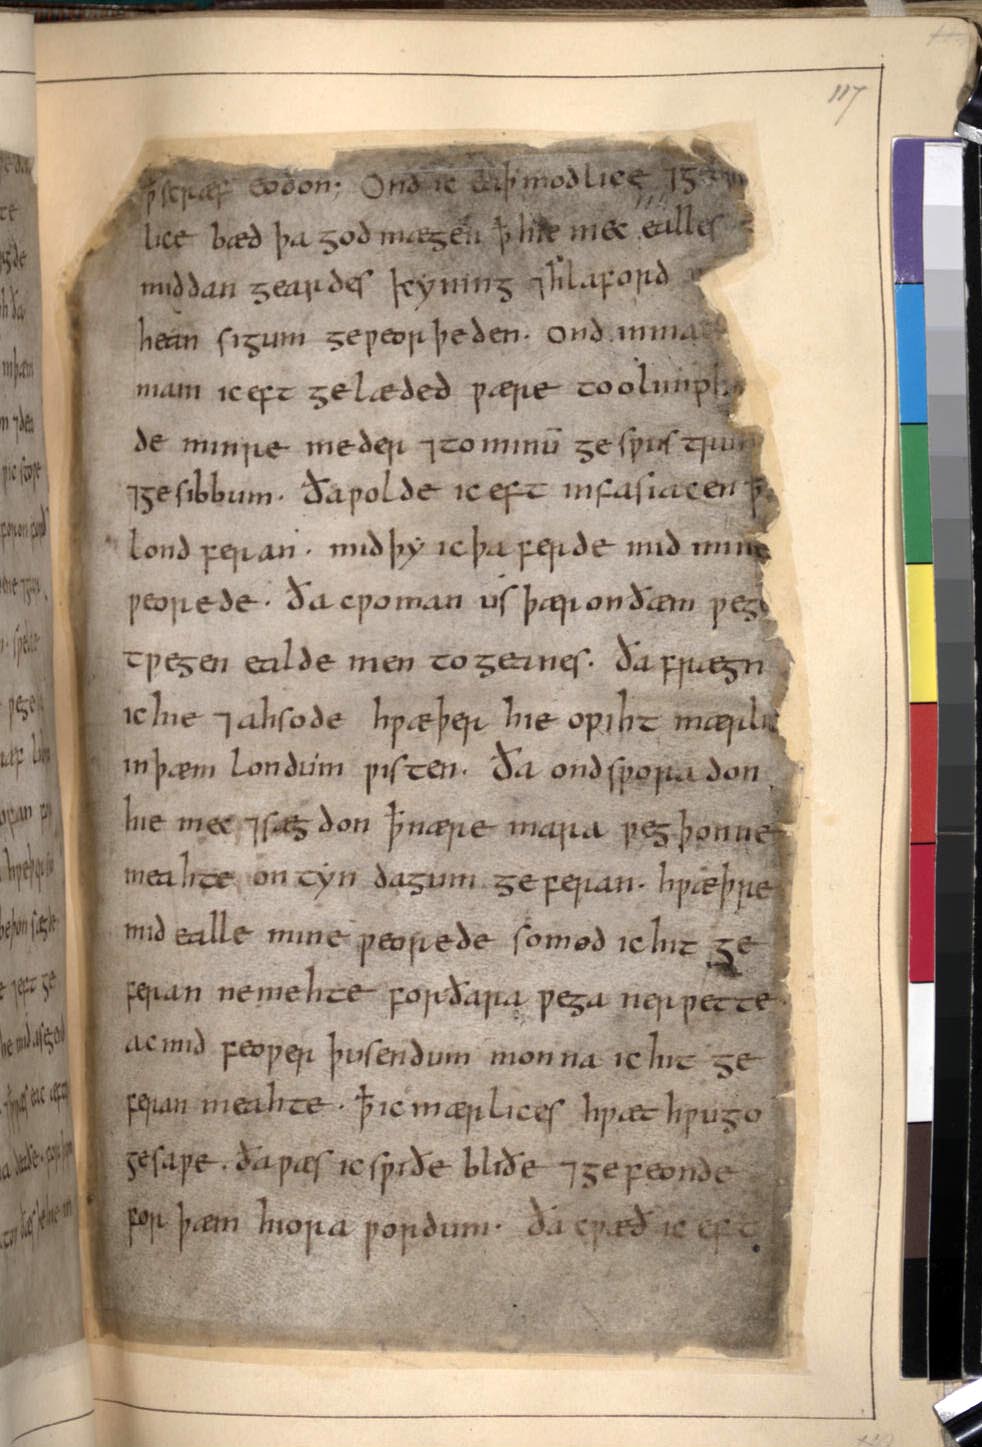 117
ꝥ scræf eodon; Ond ic eaþmodlice ⁊
lice bæd þa godmægen ꝥ hie mec ealles
middan geardes kyning ⁊ hlaford
hean sigum geƿeorþeden. Ond in
mam ic eft gelæded ƿære to olimph
de minre meder ⁊ to minū gesƿustrum
⁊ gesibbum. Ða ƿolde ic eft in fasiacen ꝥ
lond feran. mid þẏ ic þa ferde mid mine
ƿeorede. Ða cƿoman us þær on ðæm ƿeg
tƿegen ealde men togeanes. ða frægn
ic hie ⁊ ahsode hƿæþer hie oƿiht mærlic
in þæm londum ƿisten. Ða ondsƿoradon
hie mec ⁊ sægdon ꝥ nære mara ƿeg þonne
meahte on tẏn dagum geferan. hƿæþre
mid ealle mine ƿeorede somod ic hit ge
feran ne mehte for ðara ƿega nerƿette
ac mid feoƿer þusendum monna ic hit ge
feran meahte. ꝥ ic mærlices hƿæthƿugo
gesaƿe. ða ƿæs ic sƿiðe bliðe ⁊ gefeonde
for þæm hiora ƿordum. ða cƿæð ic eft